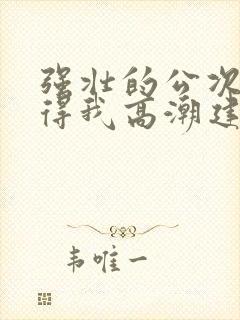 强壮的公次
得我高潮建
韦唯一